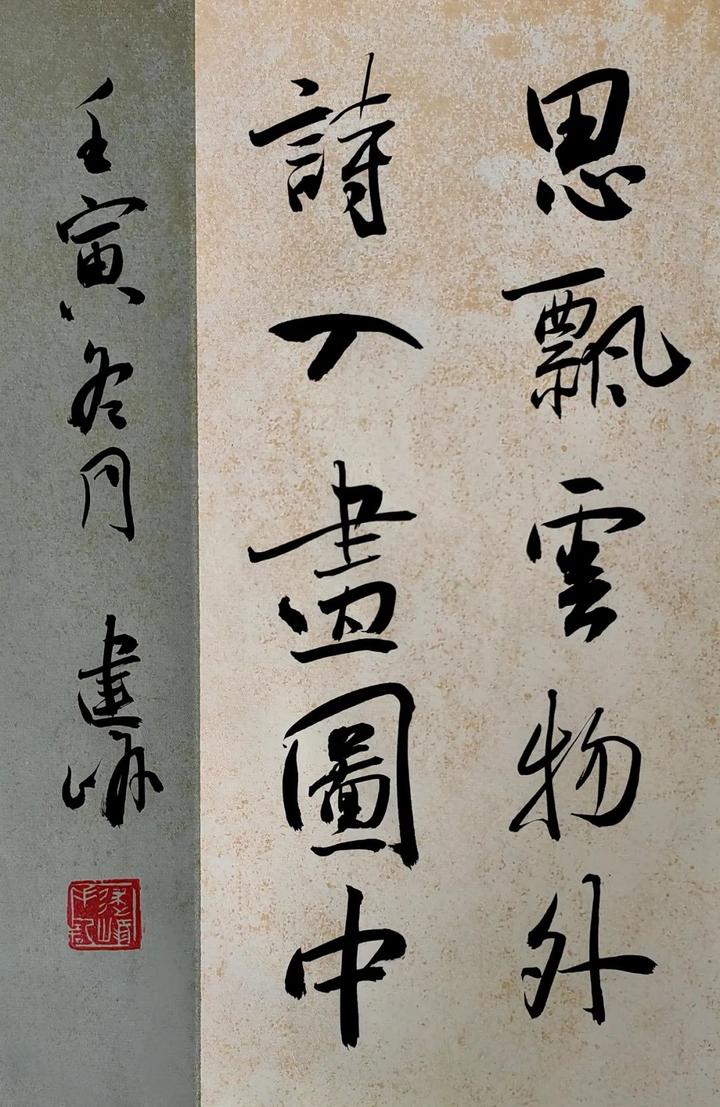 思飄雲物外
詩入畫圖中
壬寅冬月 建